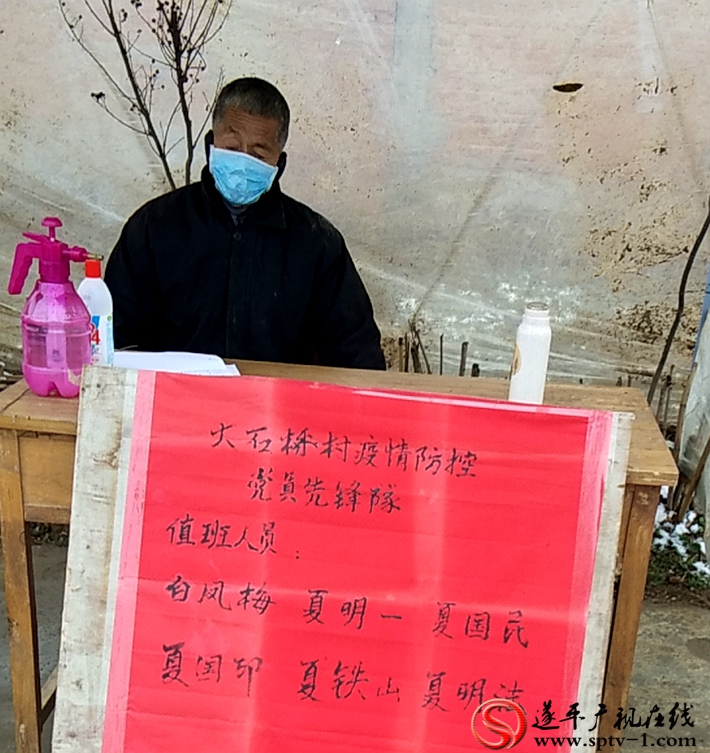 大石桥村疫情防控
党员先锋隊
值班人员：
白风梅 夏明一 夏国民
夏国印 夏铁山 夏明法
遂平广视在线
www.sptv-1.com